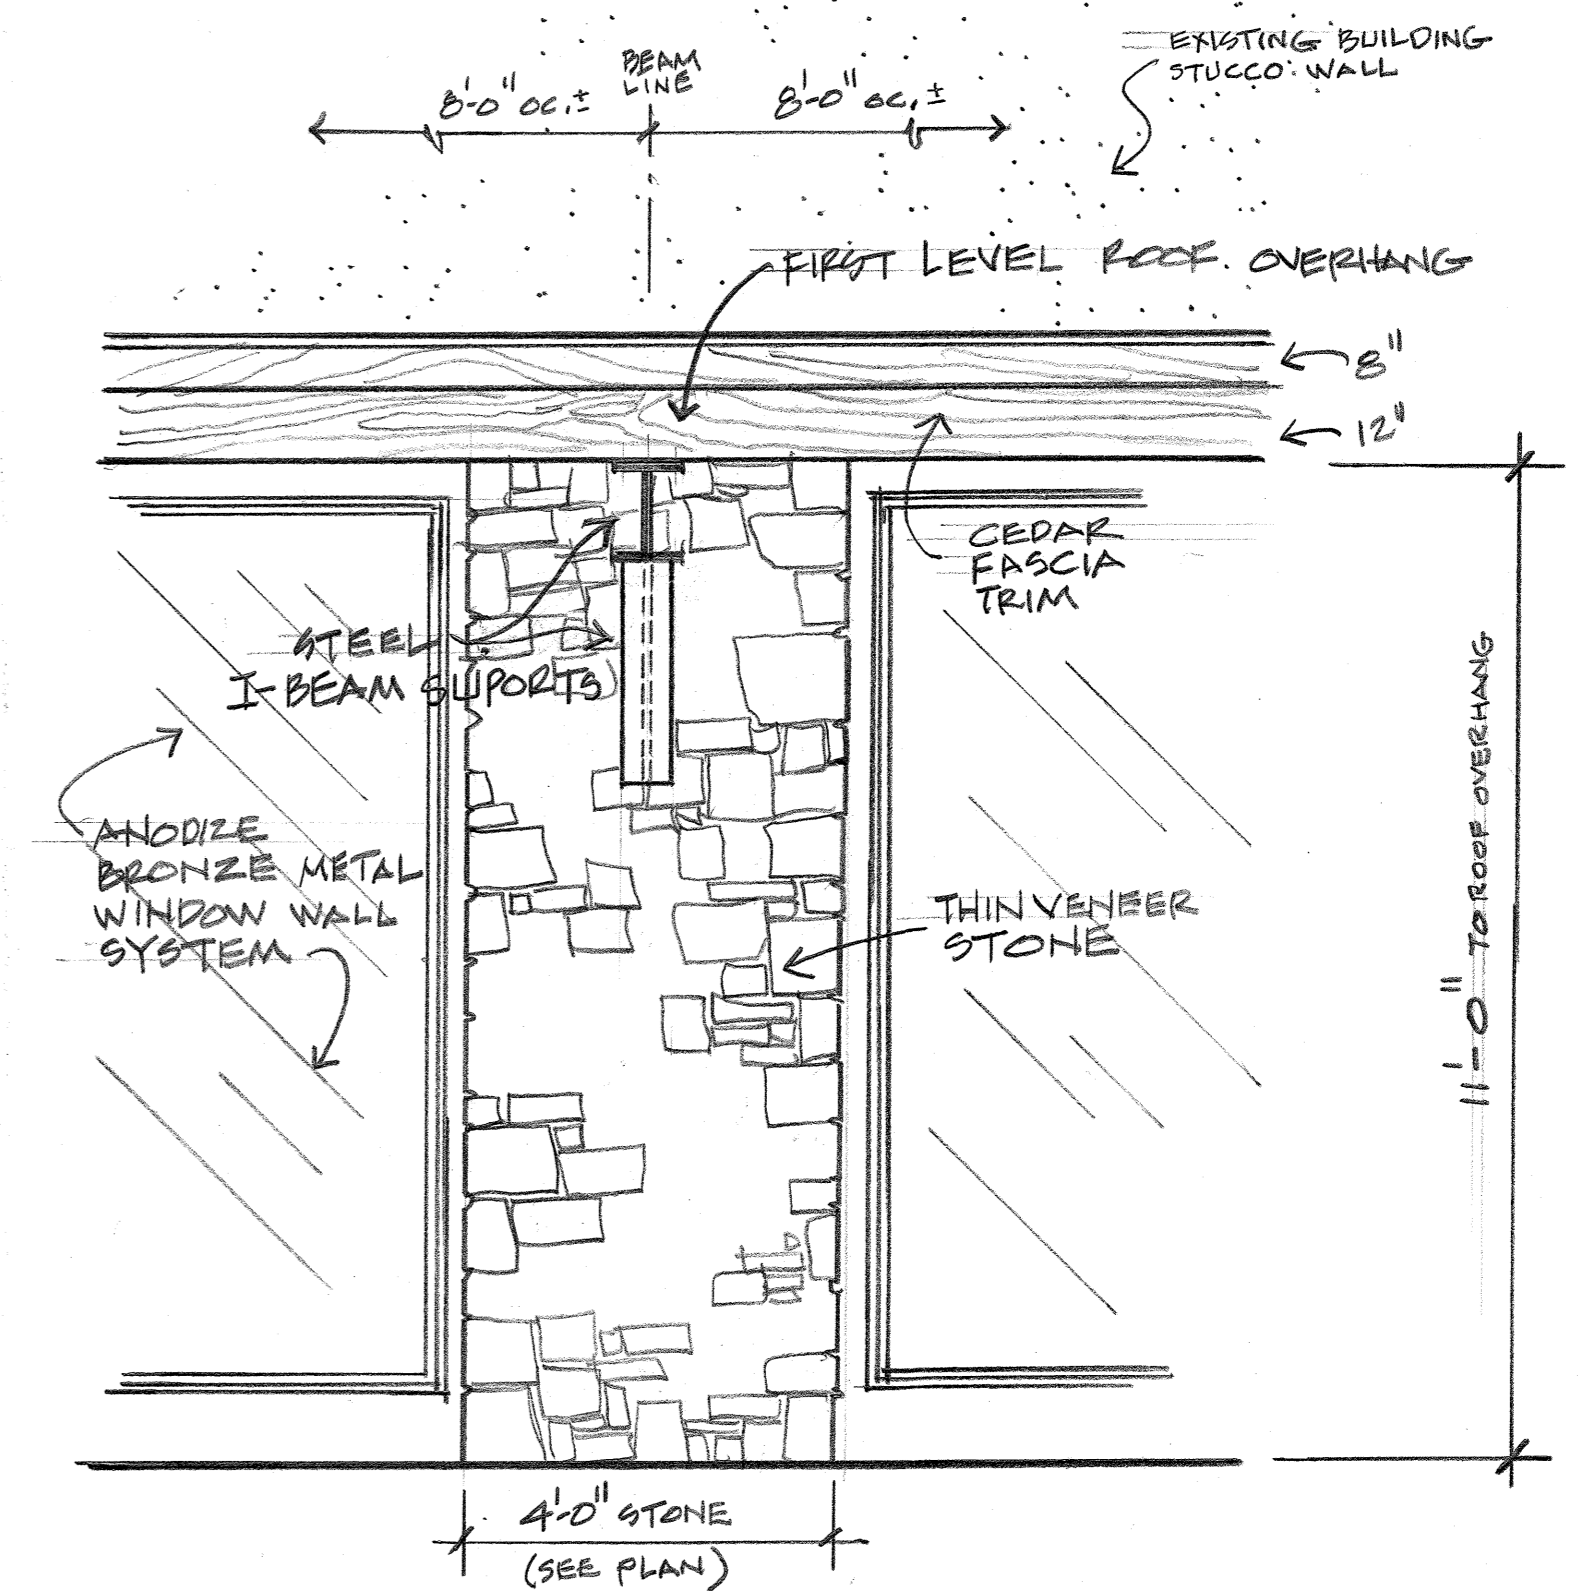 EXISTING BUILDING
STUCCO WALL
BEAM
LINE
8'-0" OC, ±
8'-0" OC, ±
FIRST LEVEL ROOF OVERHANG
8"
12"
CEDAR
FASCIA
TRIM
STEEL
I-BEAM SUPORTS
11'-0" TO ROOF OVERHANG
ANODIZE
BRONZE METAL
WINDOW WALL
SYSTEM
THIN VENEER
STONE
4'-0" STONE
(SEE PLAN)